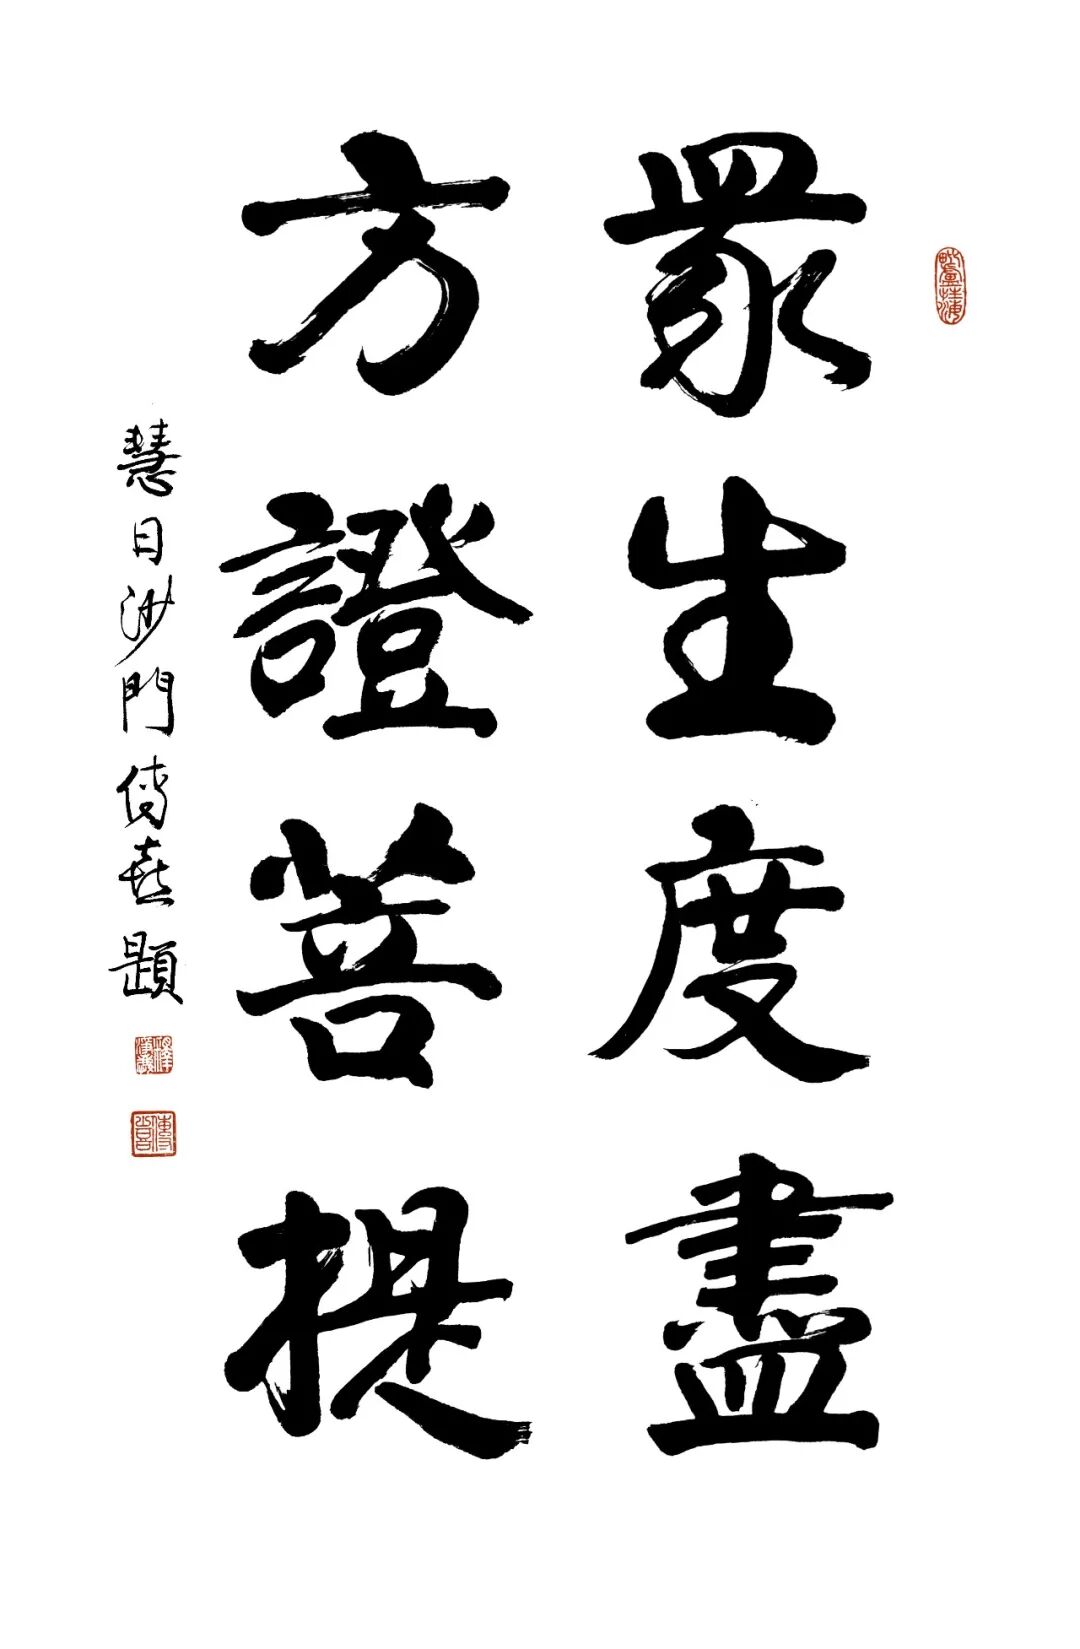 眾生度盡
方證菩提
慧日沙門傳喜題